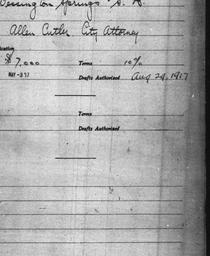 Wessington Springs S. D.
Allen Cutler City Attorney
$7,000 Terms 10%
MAY -3 17 Drafts Authorized Aug 29, 1917
Terms
Drafts Authorized